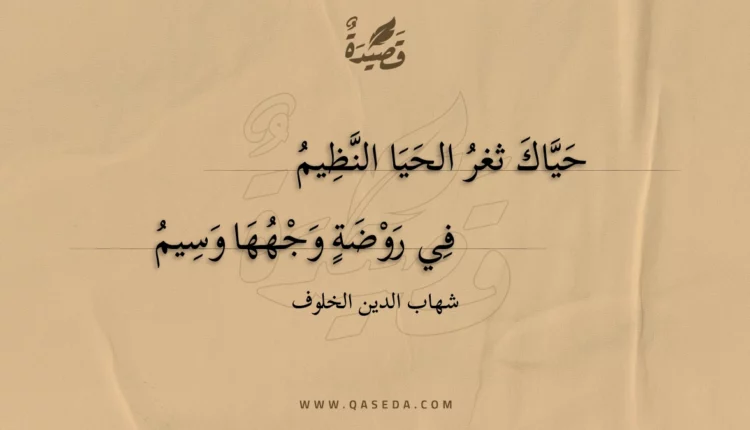 قَصِيْدَةٌ
حَيَّاكَ ثغرُ الحَيَا النَّظِيمُ
فِي رَوْضَةٍ وَجْهُهَا وَسِيمُ
شهاب الدين الخلوف
WWW.QASEDA.COM